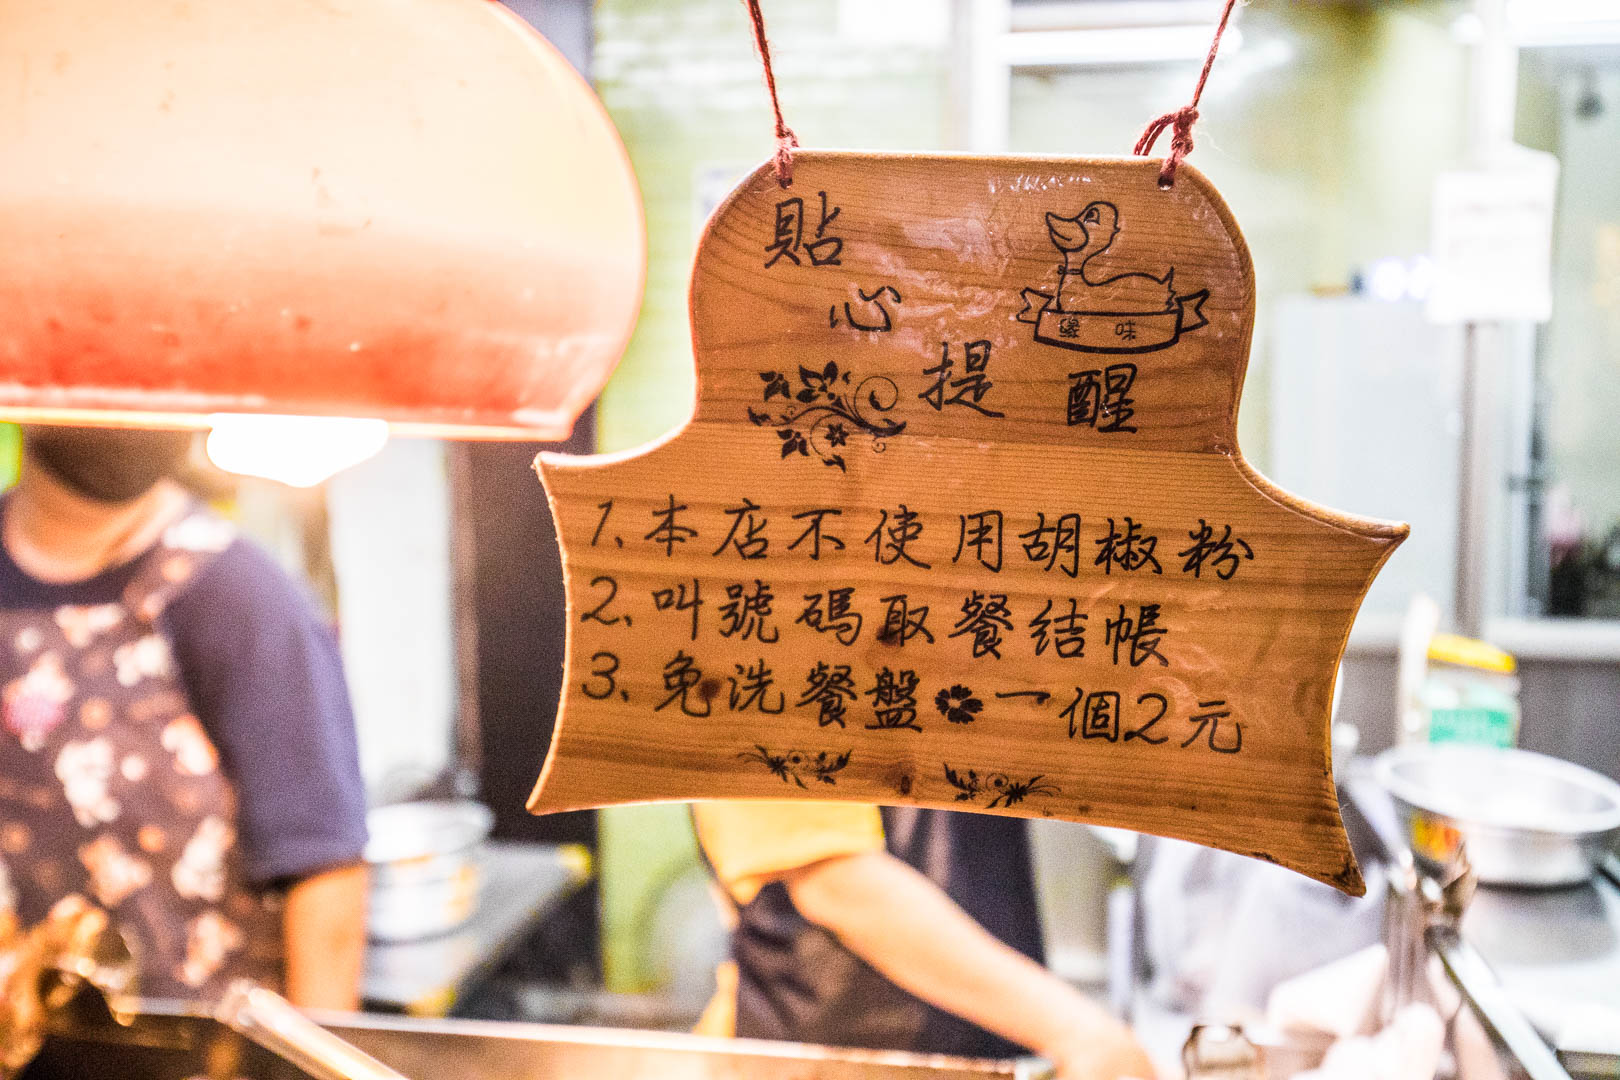 貼心提醒
緣味
1、本店不使用胡椒粉
2、叫號碼取餐结帳
3、免洗餐盤一個2元